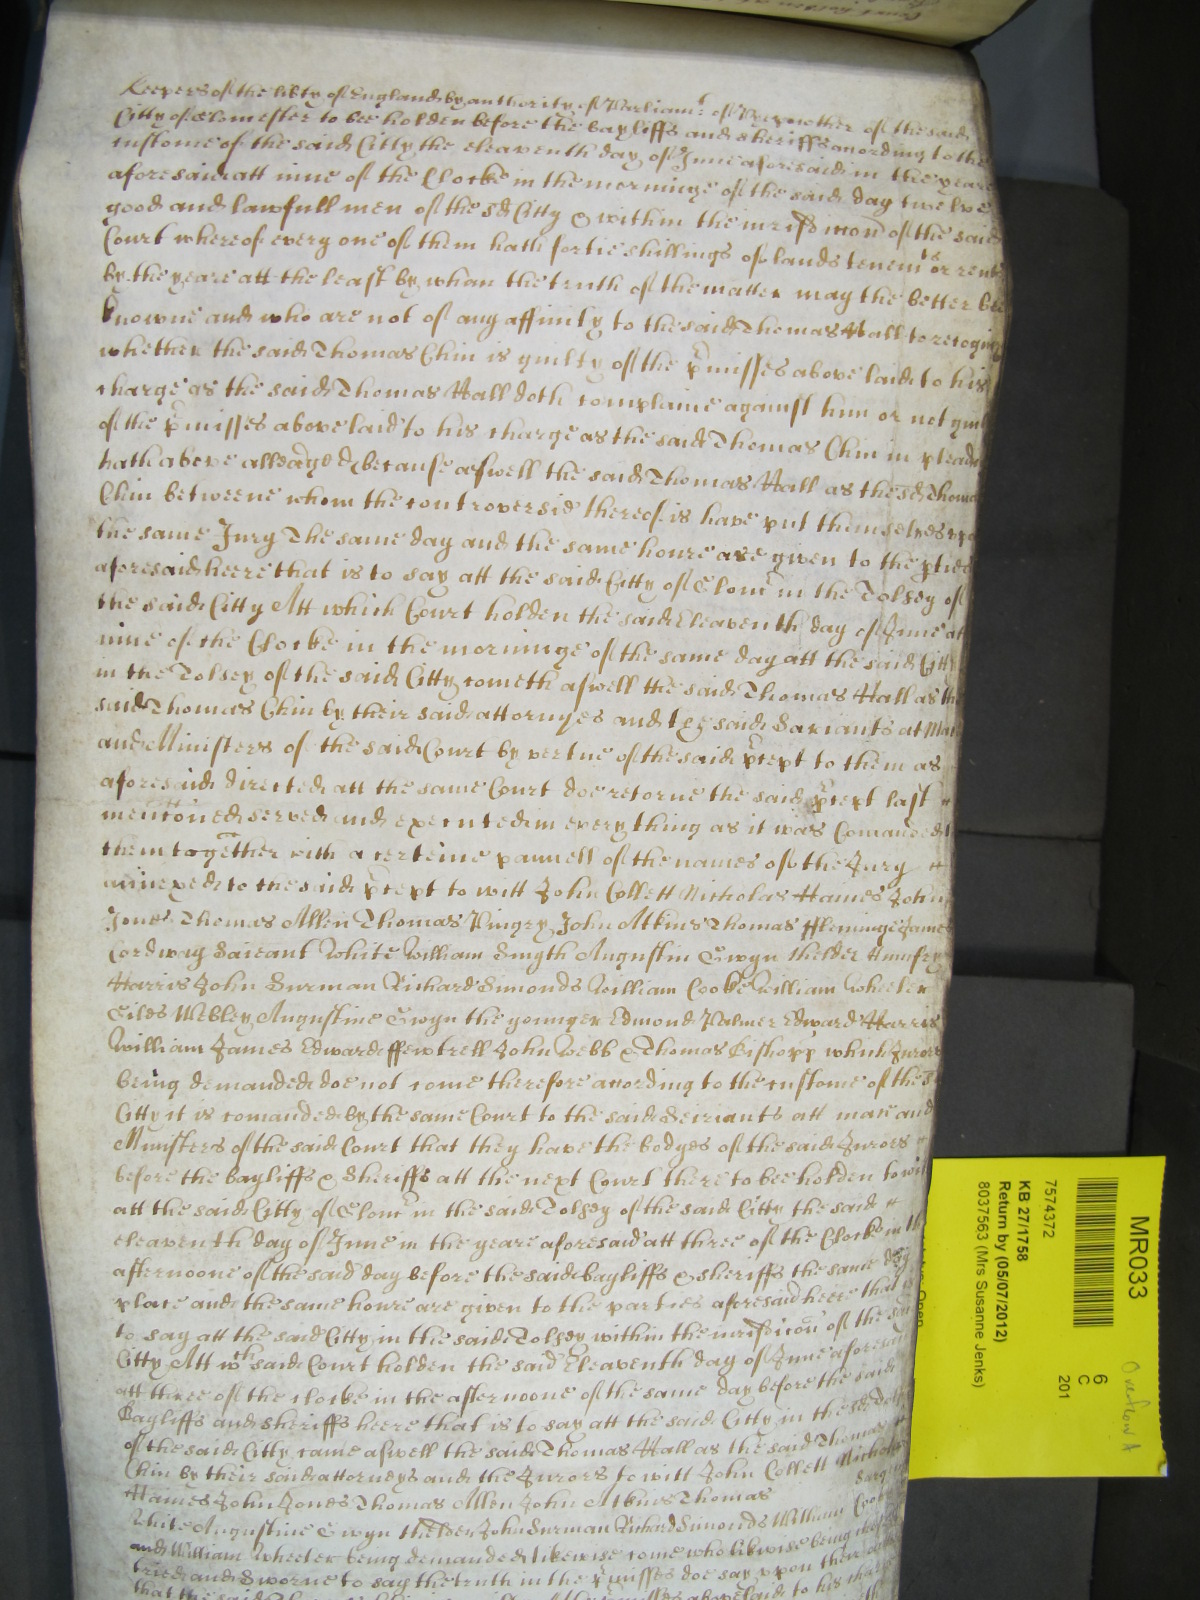 Keepers of the lib'ty of England by authority of Parliamt. of the said
Citty of Gloucester to bee holden before the bayliffs and sheriffs acording to the
custome of the said Citty the eleaventh day of June aforesaid in the yeare
aforesaid att nine of the Clocke in the morninge of the said day twelve
good and lawfull men of the sd Citty & within the iurisdiccon of the said
Court whereof every one of them hath fortie shillings of lands tenemts or rents
by the yeare att the least by whom the truth of the matter may the better bee
knowne and who are not of any affinity to the said Thomas Hall to recogn
whether the said Thomas Chin is guilty of the p'misses above laid to his
charge as the said Thomas Hall doth complaine against him or not guil
of the p'misses above laid to his charge as the said Thomas Chin in pleadi
hath above alleadged because aswell the said Thomas Hall as the sd Thoma
Chin betweene whom the controversie thereof is have put themselves upo
the same Jury The same day and the same houre are given to the p'ties
aforesaid heere that is to say att the said Citty of Glouc' in the Tolsey of
the said Citty Att which Court holden the said Eleaventh day of June at
nine of the Clocke in the morninge of the same day att the said Citty
in the Tolsey of the said Citty cometh aswell the said Thomas Hall as the
said Thomas Chin by their said attornyes and said Sariants at Mac
and Ministers of the said Court by vertue of the said p'cept to them as
aforesaid directed att the same Court doe retorne the said p'cept last
mentioned served and executed in every thing as it was Comanded
them together with a certeine pannell of the names of the Jury
annexed to the said p'cept to witt John Collett Nicholas Haines John
Jones Thomas Allen Thomas Pingry John Atkins Thomas ffleminge James
Cordway Saieant White William Smyth Augustin Gwyn thelder Humfry
Harris John Surman Richard Simonds William Cooke William Wheeler
Giles Webley Augustine Gwyn the younger Edmond Palmer Edward Harris
William James Edward ffewtrell John Webb & Thomas Bishopp which Jurors
being demanded doe not come therefore acording to the custome of the s
Citty it is comanded by the same Court to the said Seiriants att mace and
Ministers of the said Court that they have the bodyes of the said Jurors
before the bayliffs & Sheriffs att the next Court there to bee holden to wit
att the said Citty of Glouc' in the said Tolsey of the said Citty the said
eleaventh day of June in the yeare aforesaid att three of the Clocke in th
afternoone of the said day before the said bayliffs & sheriffs the same day
place and the same houre are given to the parties aforesaid heere that is
to say att the said Citty in the said Tolsey within the iurisdiccon of the said
Citty Att wch said Court holden the said Eleaventh day of June aforesaid
att three of the clocke in the afternoone of the same day before the said
Bayliffs and sheriffs heere that is to say att the said Citty in the sd Tolsey
of the said Citty came aswell the said Thomas Hall as the said Thomas
Chin by their said attorneys and the Jurors to witt John Collett Nicholas
Haines John Jones Thomas Allen John Atkins Thomas
White Augustine Gwyn thelder John Surman Richard Simonds William Cooke
and William Wheeler being demanded likewise come who likewise being
tried and Sworne to say the truth in the p'misses doe say upon their
that the said p'misses above laid to his
MR033
7574372
KB 27/1758
Return by (05/07/2012)
8037563 (Mrs Susanne Jenks)
6
C
201
Overflow A
Open